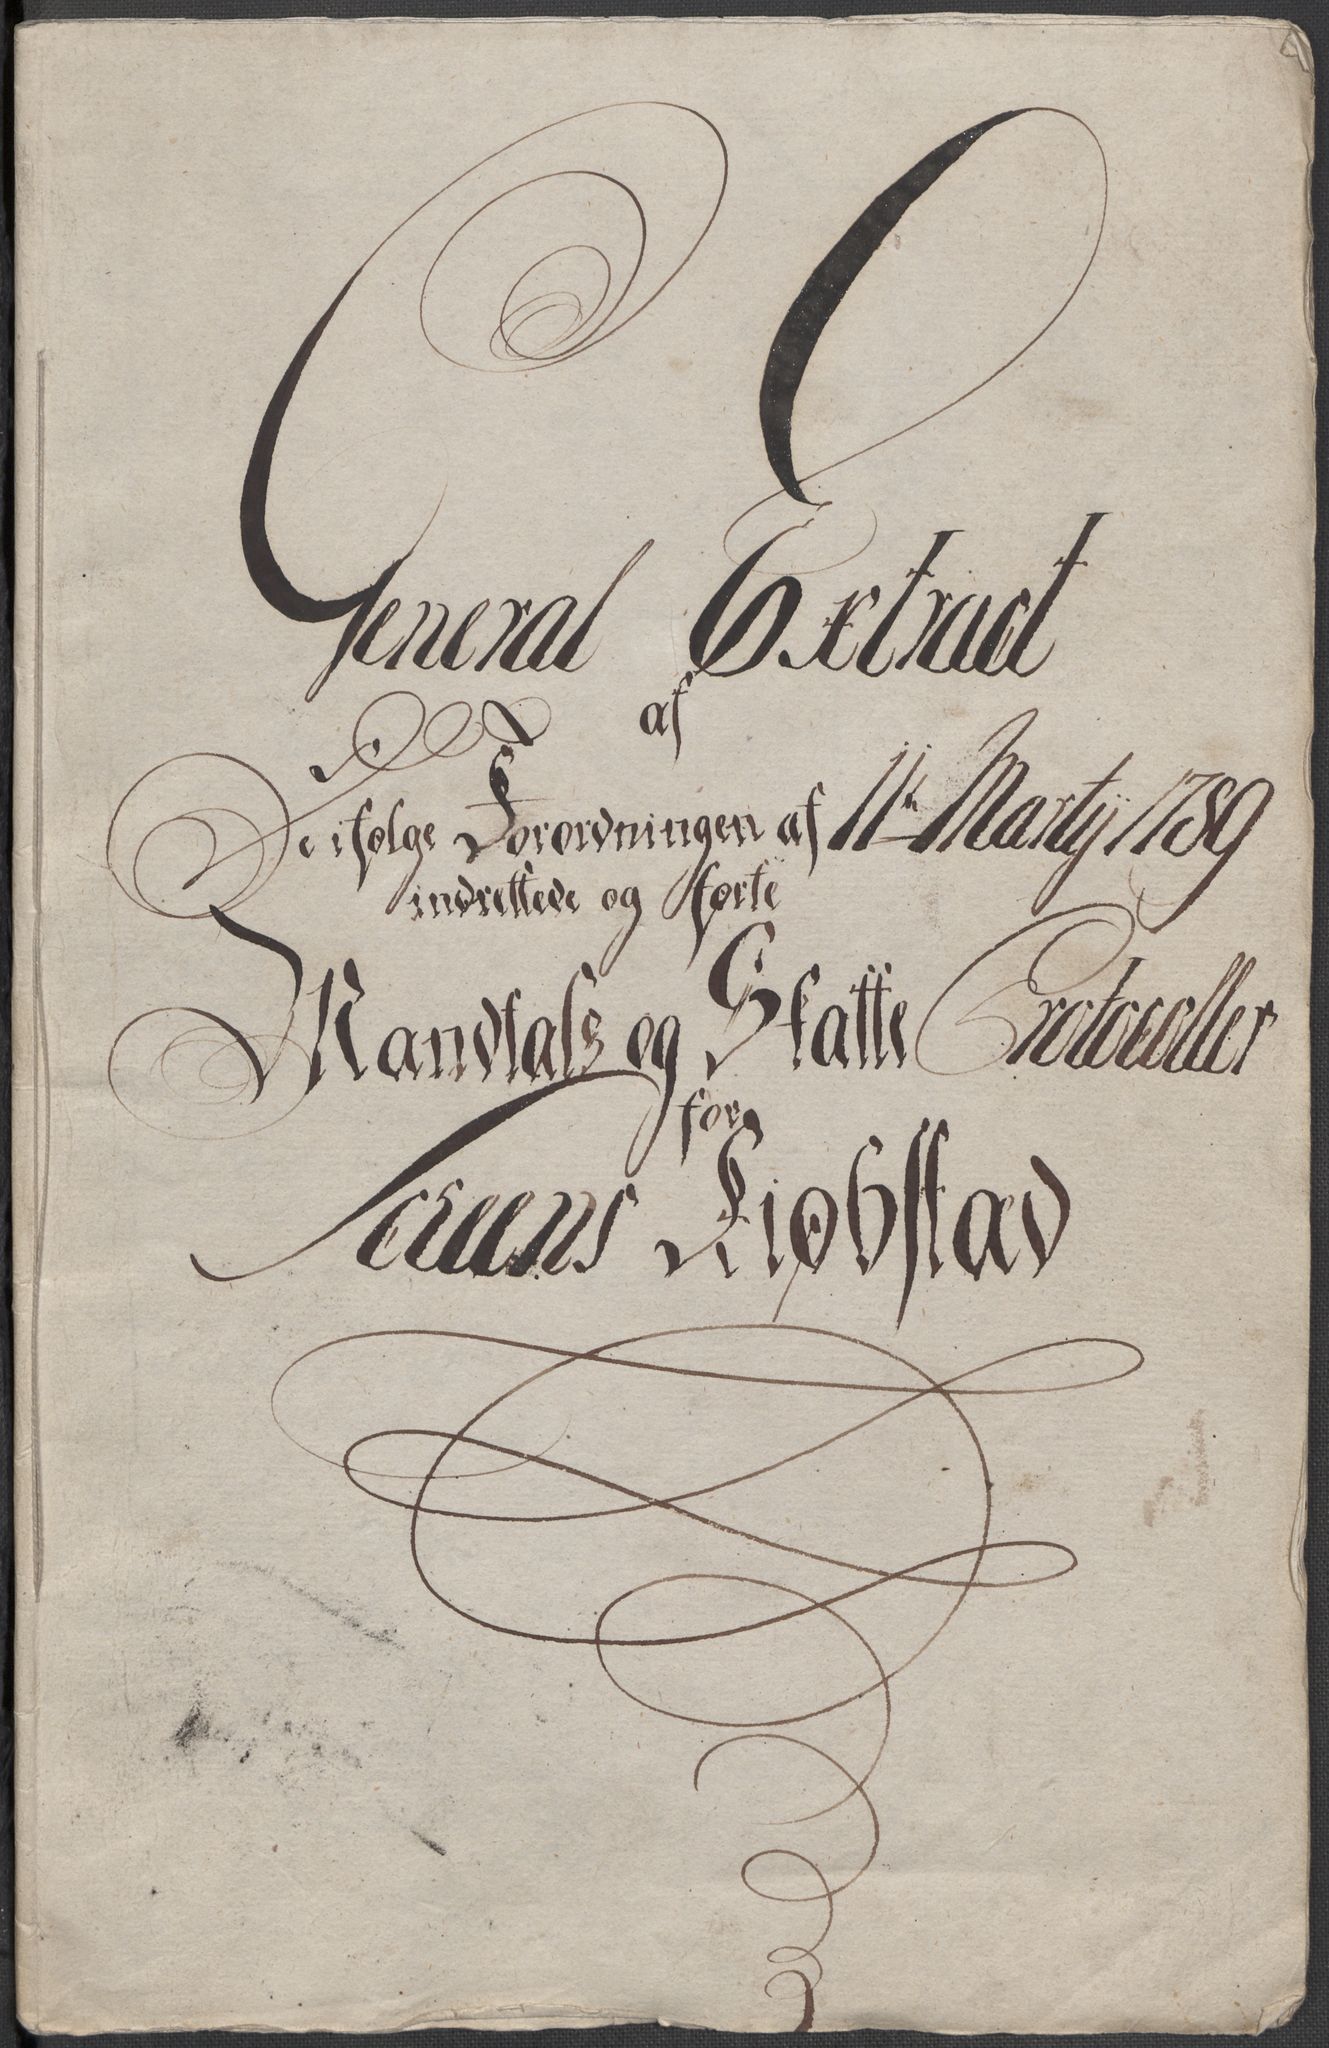 General Extract
af
De ifølge Forordningen af 11te Martij 1789
indrettede og førte
Mandtals og Skatte Protocoller
for
Scheens Kiøbstad